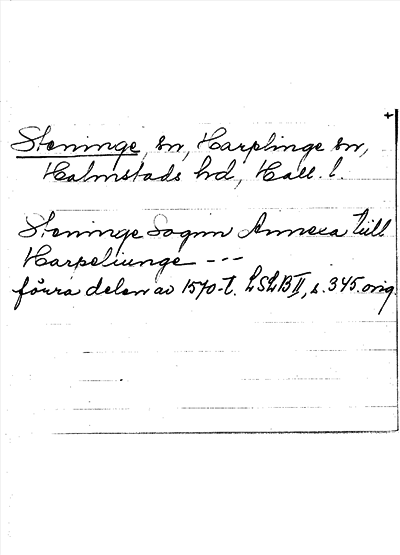 +
Steninge, sn, Harplinge sn,
Halmstads hd, Hall. l.
Steninge Sognn Annexa till
Harpeliunge ---
förra delen av 1570-t. LSLB II, s. 345. orig.